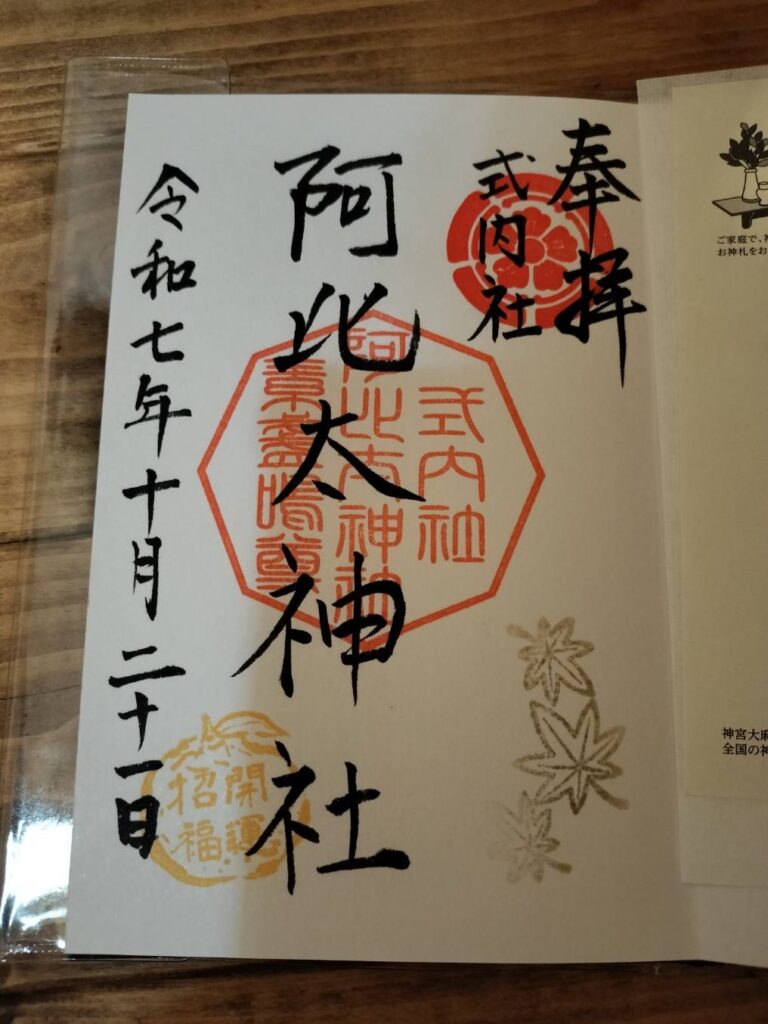 奉拝
式内社
阿比太神社
令和七年十月二十一日
式内社
阿比太神社
素盞嗚尊
開運
招福
ご家庭で、神
お神札をお
神宮大麻
全国の神